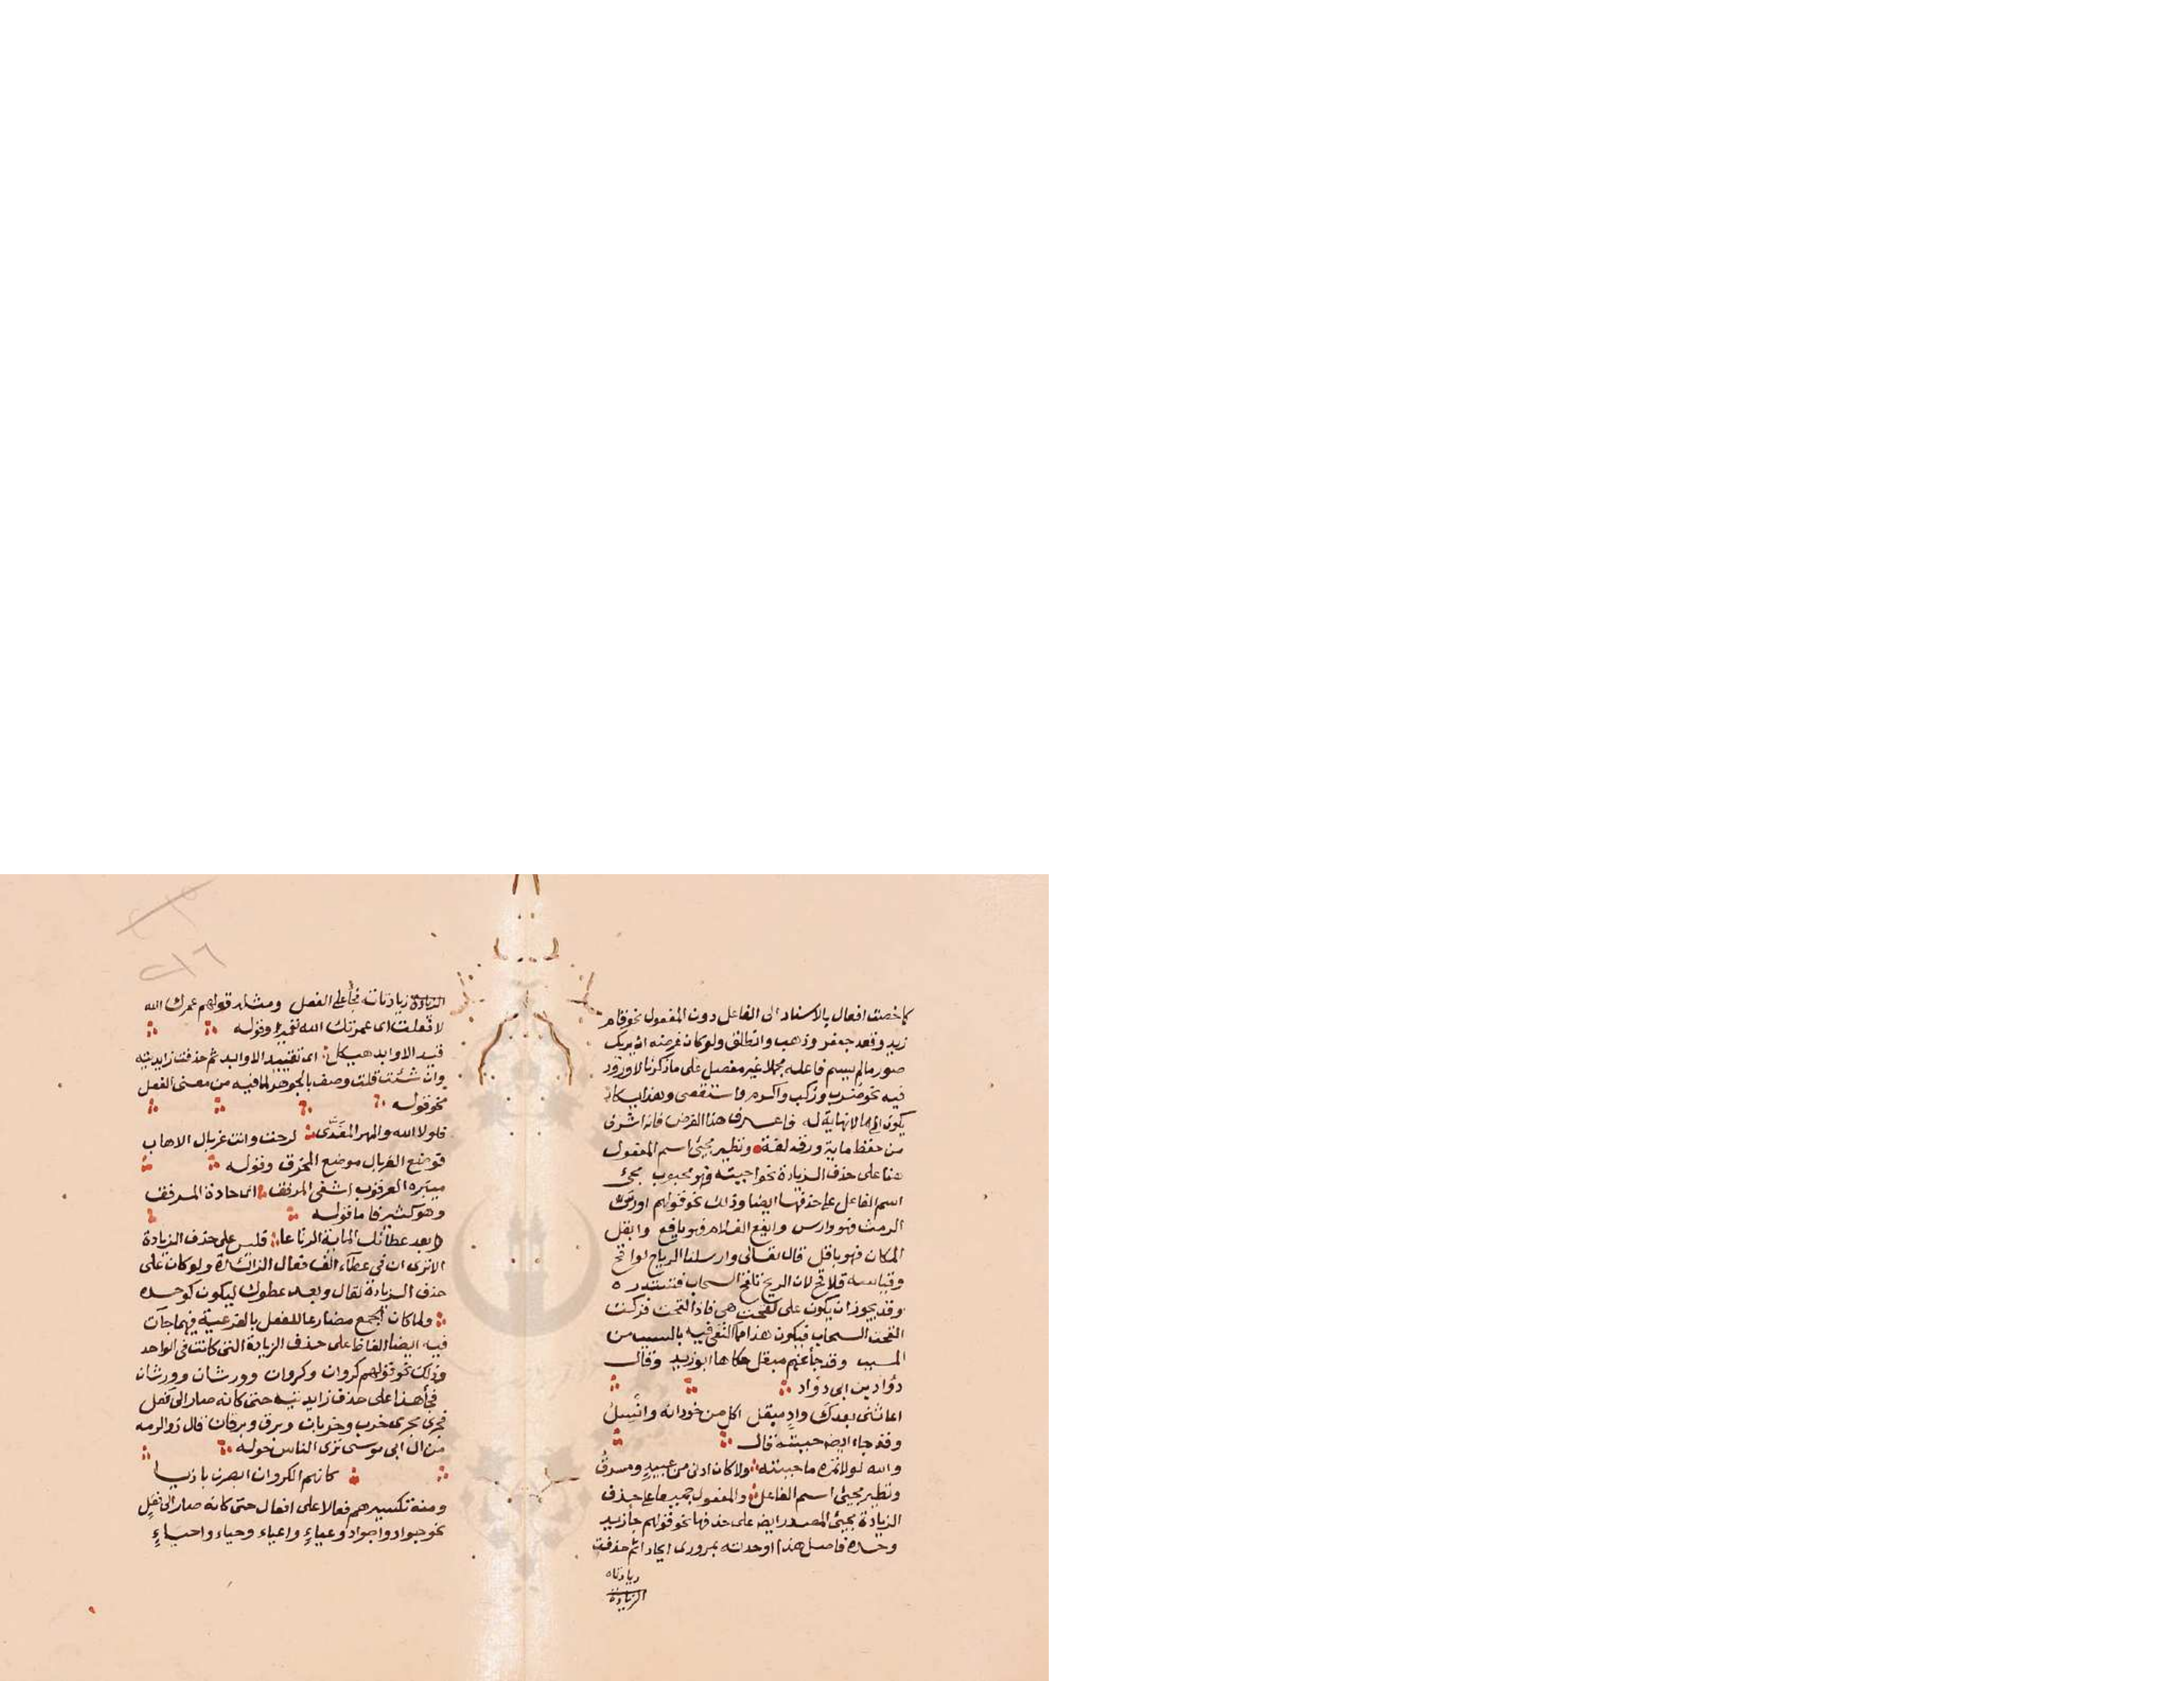 كما خصت افعال بالاسناد الى الفاعل دون المفعول نحو قام
زيد وقعد جعفر وذهب وانطلق ولو كان غرضه ان يريك
صور ما لم يسم فاعله مجملا غير مفصل على ما ذكرنا لاورد
فيه نحو ضرب وركب واكرم واستقصى وهذا يكاد
يكون الى ما لا نهاية له فاعرف هذا الغرض فانه اشرف
من حفظ ماية ورقة لغة ونظير مجئ اسم المفعول
هنا على حذف الزيادة نحو احببته فهو محبوب مجئ
اسم الفاعل على حذفها ايضا وذلك نحو قولهم اورس
الرمث فهو وارس وايفع الغلام فهو يافع وابقل
المكان فهو باقل قال تعالى وارسلنا الرياح لواقح
وقياسه فلاقح لان الريح تلقح السحاب فتستدره
وقد يجوز ان يكون على لقحت هي فاذا لقحت فزكت
القحت السحاب فيكون هذا مما اكتفى فيه بالسبب من
المسبب وقد جأ عنهم مبقل حكاها ابو زيد وقال
دؤاد بن ابى دؤاد
اعاشنى بعدك واد مبقل اكل من حوذانه وانسل
وقد جاء ايضه حببته قال
والله لولا تمره ما حببته ولا كان ادنى من عبيد ومشرق
ونظير مجئ اسم الفاعل والمفعول جميعا على حذف
الزيادة مجئ المصدر ايضه على حذفها نحو قولهم جأ زيد
وحده فاصل هذا اوحدته بمرورى ايحادا ثم حذفت
زيادتاه
الزيادة
الزيادة زيادتاه فجأ على الفعل ومثله قولهم عمرك الله
لا فعلت اى عمرتك الله تعميرا وقوله
قيد الاوابد هيكل اى تقييد الاوابد ثم حذفت زايدتيه
وان شئت قلت وصف بالجوهر لما فيه من معنى الفعل
نحو قوله
فلولا الله والمهر المفدى لرحت وانت غربال الاهاب
فوضع الغربال موضع المخرق وقوله
مئبره العرقوب اشفى المرفق اى حادة المرفق
وهو كثير فاما قوله
وبعد عطائك الماية الرتاعا فليس على حذف الزيادة
الا ترى ان فى عطاء الف فعال الزائدة ولو كان على
حذف الزيادة لقال وبعد عطوك ليكون كوحده
ولما كان الجمع مضارعا للفعل بالفرعية فيهما جآت
فيه ايضا الفاظ على حذف الزيادة التى كانت فى الواحد
وذلك نحو قولهم كروان وكروان وورشان وورشان
فجأ هذا على حذف زايدتيه حتى كانه صار الى فعل
فجرى مجرى خرب وخربان وبرق وبرقان قال ذو الرمه
من ال ابى موسى ترى الناس حوله
كانهم الكروان ابصرن بازيا
ومنه تكسيرهم فعالا على افعال حتى كانه صار الى فعل
نحو جواد واجواد وعياء واعياء وحياء واحياء